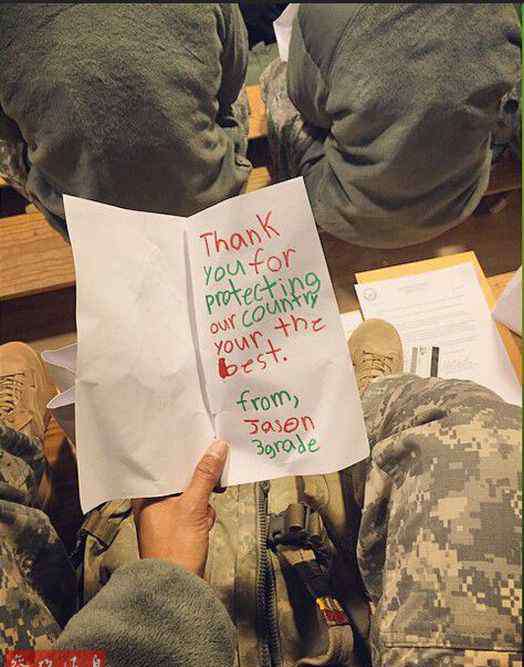 Thank
you for
protecting
our country
your the
best.
from,
Jason
3grade